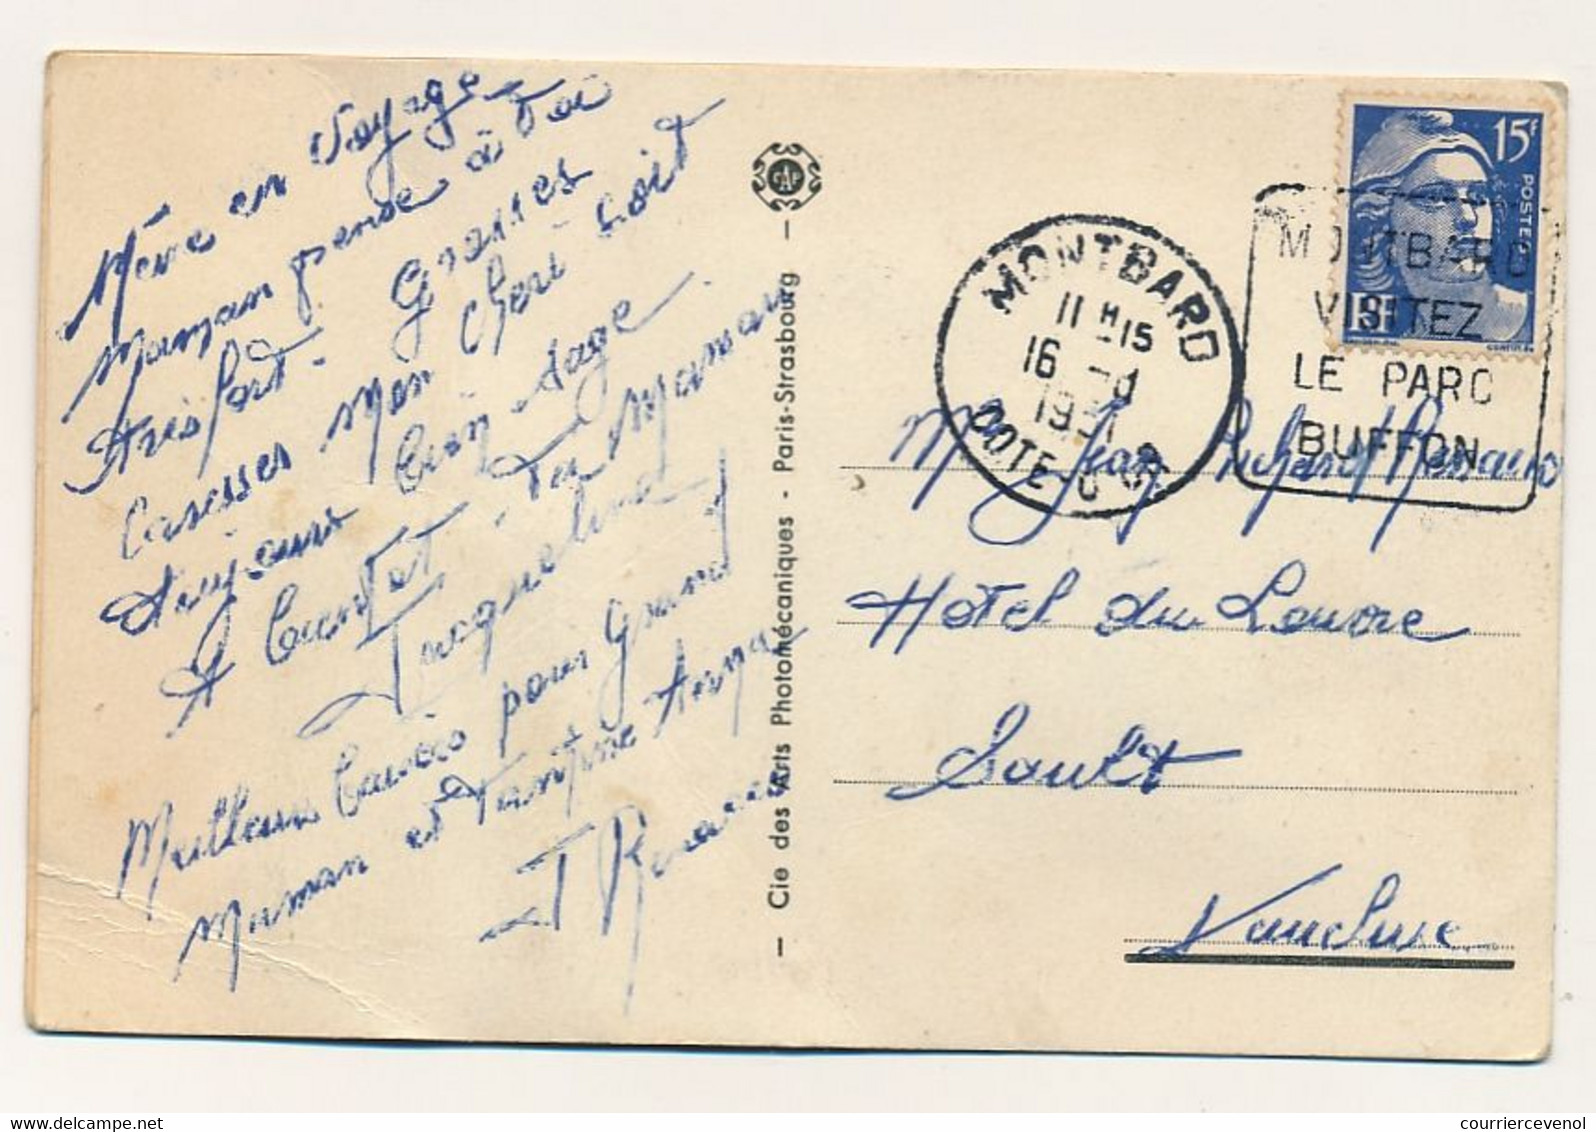 Même en Voyage
Maman pense à Toi
très fort - Grosses
Caresses Mon cheri soit
toujours bien sage
A bientot - Ta Maman
Jacqueline
Meilleurs baisers pour Grand
Maman et Tantine
J Renaud
CAP
— Cie des Arts Photomécaniques - Paris-Strasbourg —
15F
POSTES
RF
MONTBARD
11 H 15
16
19
COTE-D'OR
MONTBARD
VISITEZ
LE PARC
BUFFON
Mr Jean Richard Renaud
Hôtel du Louvre
Sault
Vaucluse
courriercevenol.com